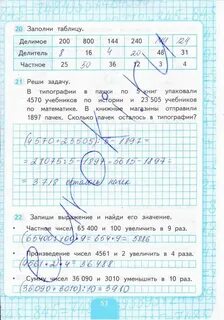 20 Заполни таблицу.
Делимое 200 800 144 240 144 124
Делитель 8 16 4 20 48 31
Частное 25 50 36 12 3 4
21 Реши задачу.
В типографии в пачки по 5 книг упаковали
4570 учебников по истории и 23 505 учебников
по математике. В книжные магазины отправили
1897 пачек. Сколько пачек осталось в типографии?
(4570+23505):5-1897=
=28075:5-1897=5615-1897=
=3718
22 Запиши выражение и найди его значение.
• Частное чисел 65 400 и 100 увеличить в 9 раз.
(65400:100)·9=654·9=5886
• Произведение чисел 4561 и 2 увеличить в 4 раза.
(4561·2)·4=36488
• Сумму чисел 36 090 и 3010 уменьшить в 10 раз.
(36090+3010):10=3910
53